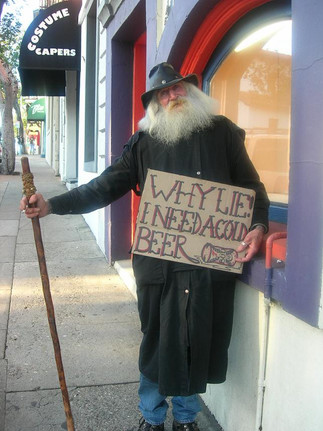 COSTUME
CAPERS
WHY LIE
I NEED A COLD
BEER